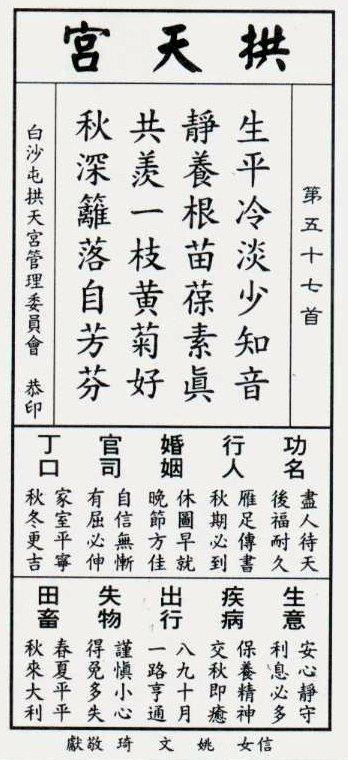 拱天宮
第五十七首
生平冷淡少知音
靜養根苗葆素眞
共羨一枝黃菊好
秋深籬落自芳芬
白沙屯拱天宮管理委員會　恭印
功名
盡人待天
後福耐久
行人
雁足傳書
秋期必到
婚姻
休圖早就
晚節方佳
官司
自信無慚
有屈必伸
丁口
家室平寧
秋冬更吉
生意
安心靜守
利息必多
疾病
保養精神
交秋即癒
出行
八九十月
一路亨通
失物
謹慎小心
得免多失
田畜
春夏平平
秋來大利
信女　姚文琦　敬獻